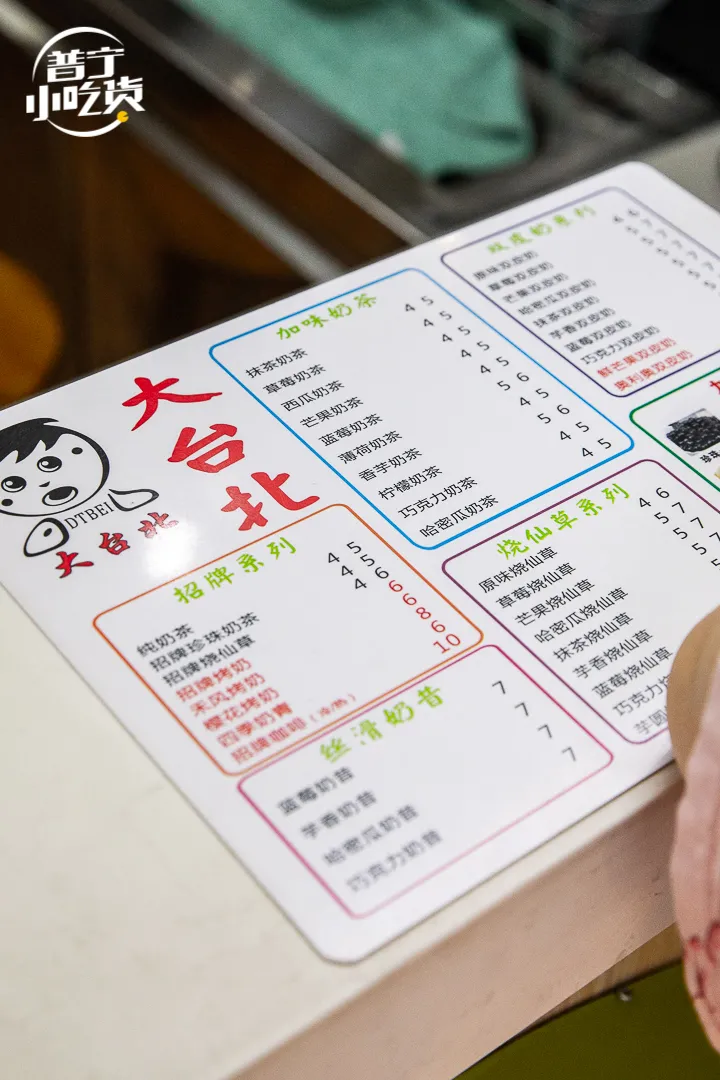 普宁
小吃货
大台北
DTBEI
大台北
招牌系列
纯奶茶 4 5
招牌珍珠奶茶 4 5
招牌烧仙草 4 6
招牌烤奶 6
禾风烤奶 6
樱花烤奶 8
四季奶青 6
招牌咖啡（冷/热） 10
加味奶茶
抹茶奶茶 4 5
草莓奶茶 4 5
西瓜奶茶 4 5
芒果奶茶 4 5
蓝莓奶茶 4 5
薄荷奶茶 5 6
香芋奶茶 4 5
柠檬奶茶 5 6
巧克力奶茶 4 5
哈密瓜奶茶 4 5
丝滑奶昔
蓝莓奶昔 7
芋香奶昔 7
哈密瓜奶昔 7
巧克力奶昔 7
双皮奶系列
原味双皮奶 4 6
草莓双皮奶 5 7
芒果双皮奶 5 7
哈密瓜双皮奶 5 7
抹茶双皮奶 5 7
芋香双皮奶
蓝莓双皮奶
巧克力双皮奶
鲜芒果双皮奶
奥利奥双皮奶
烧仙草系列
原味烧仙草 4 6
草莓烧仙草 5 7
芒果烧仙草 5 7
哈密瓜烧仙草 5
抹茶烧仙草
芋香烧仙草
蓝莓烧仙草
巧克力烧
芋圆
珍珠